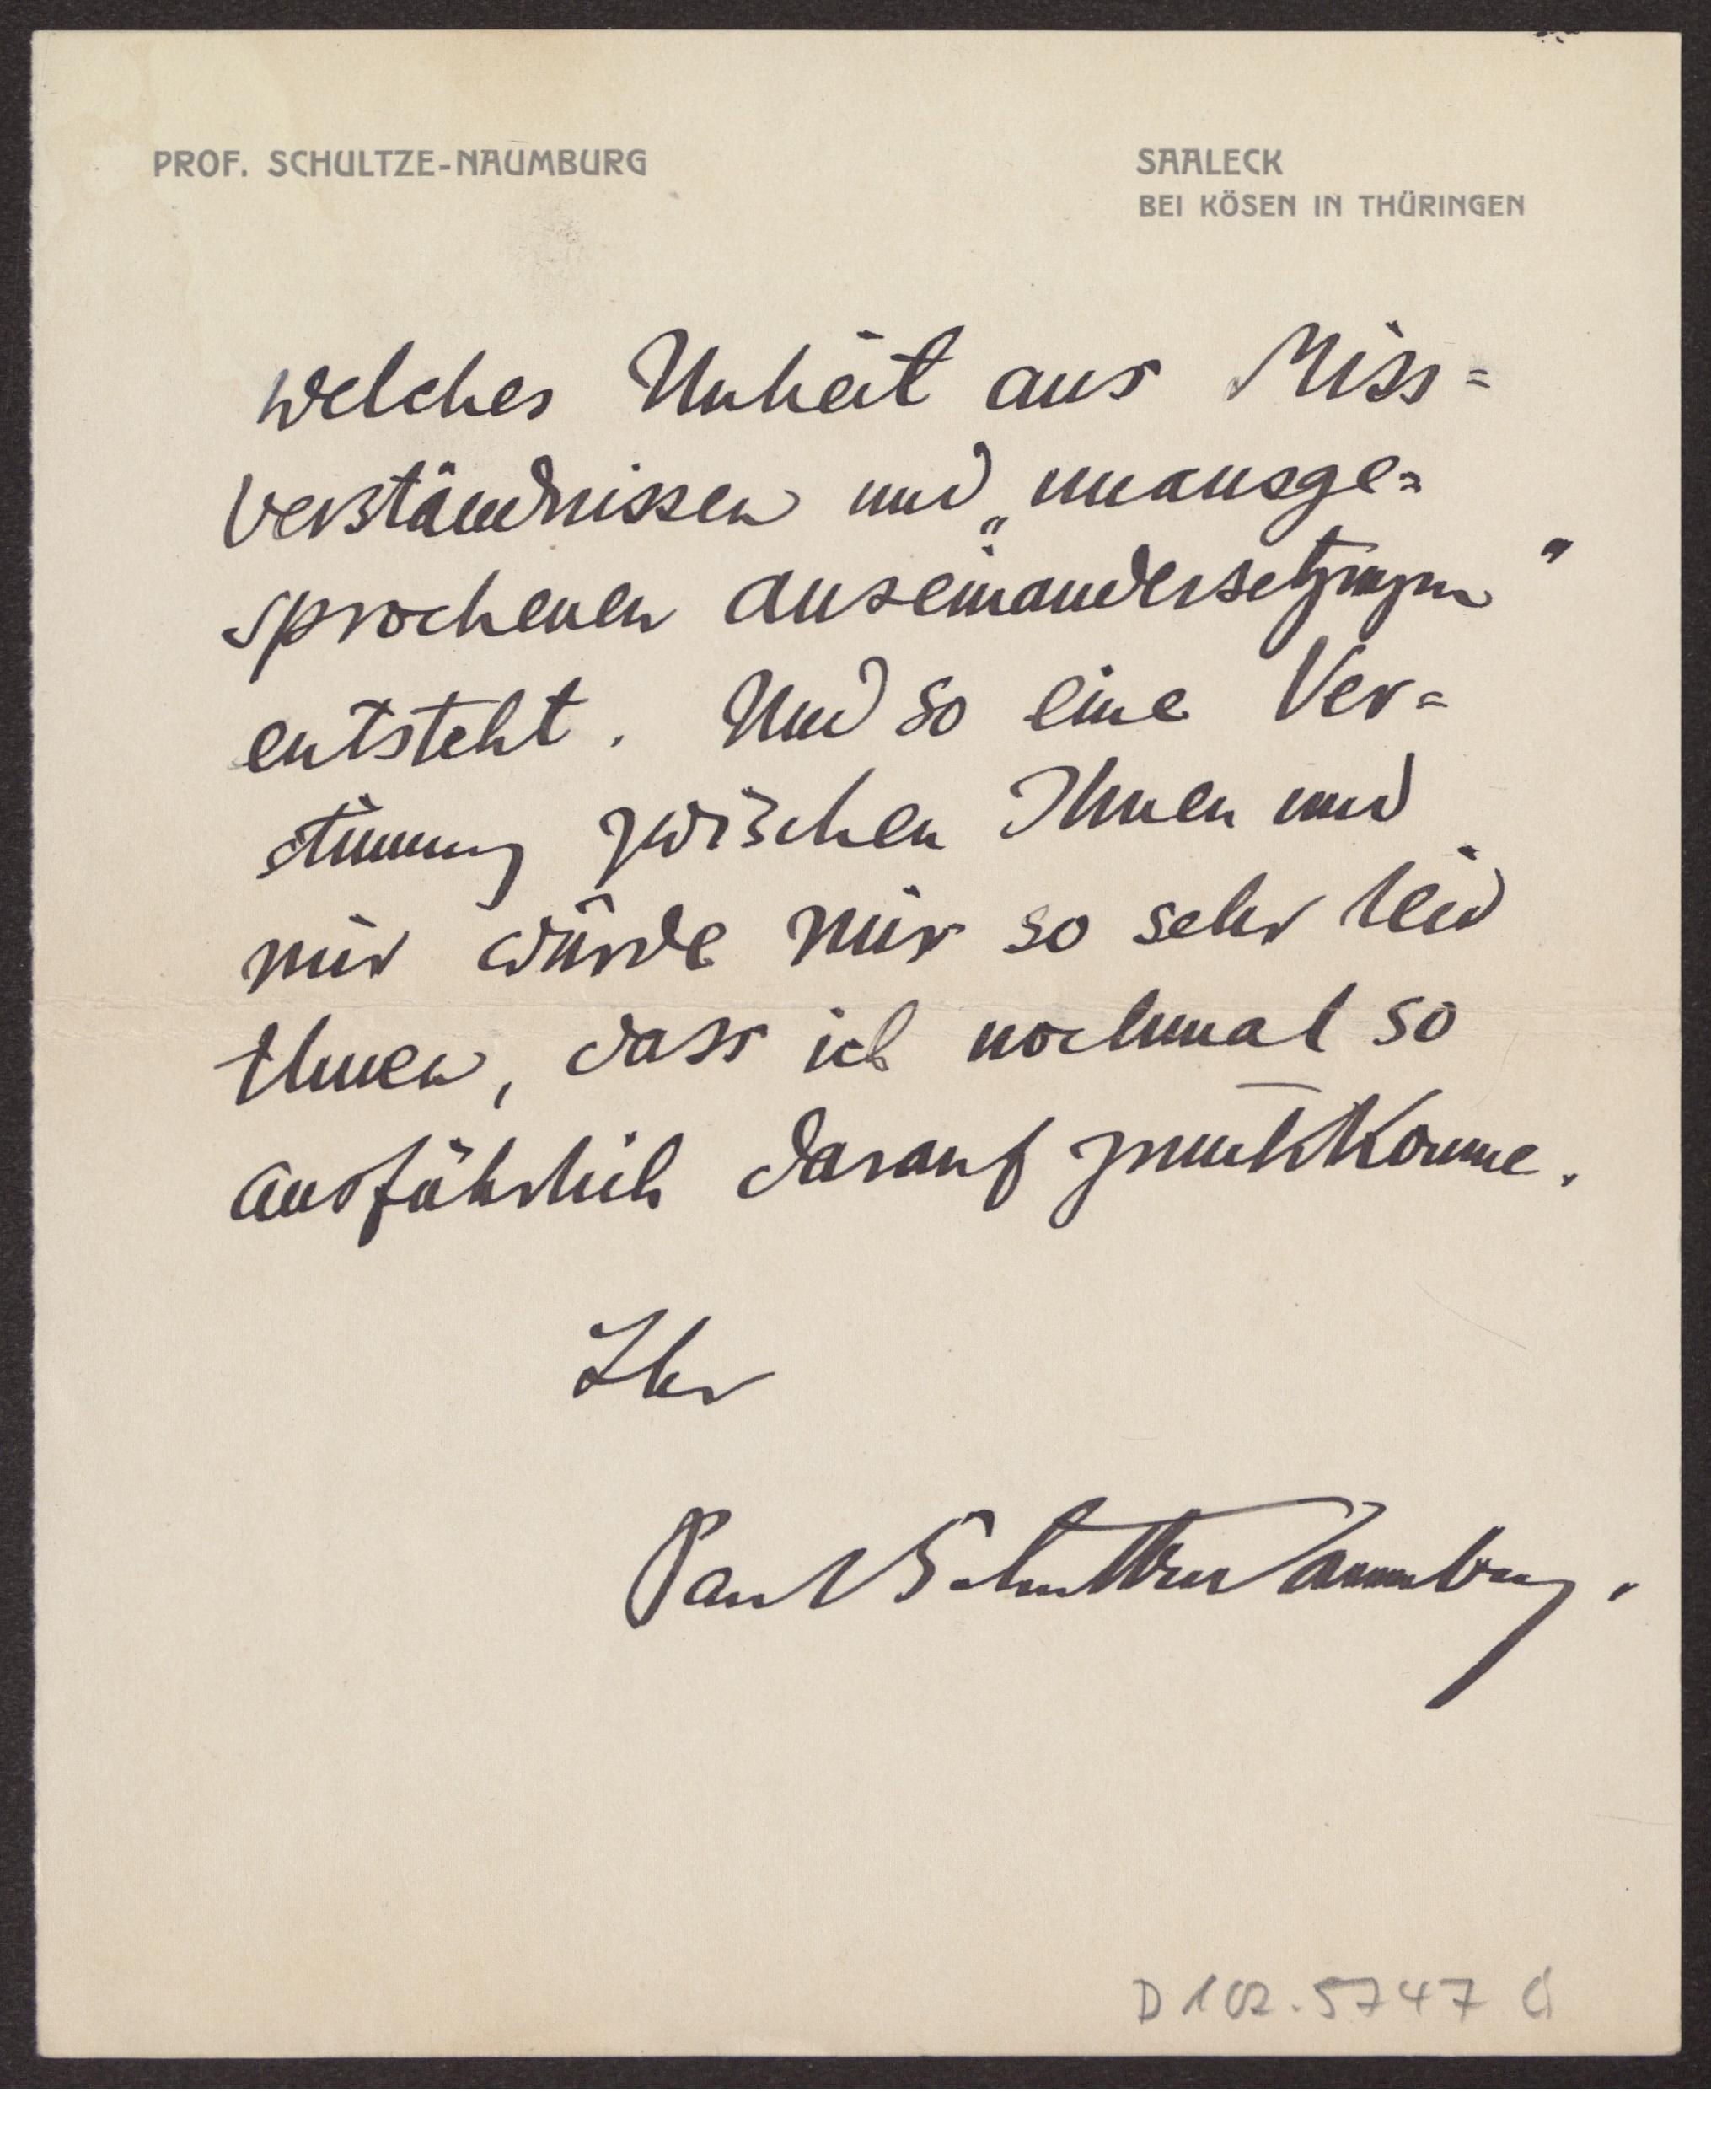 PROF. SCHULTZE-NAUMBURG
SAALECK
BEI KÖSEN IN THÜRINGEN
welches Unheil aus Miss=
verständnissen und „unausge=
sprochenen Auseinandersetzungen"
entsteht. Und so eine Ver=
stimmung zwischen Ihnen und
mir würde mir so sehr leid
thuen, dass ich nochmal so
ausführlich darauf zurückkomme.
Ihr
Paul Schultze Naumburg.
D 102.5747 d